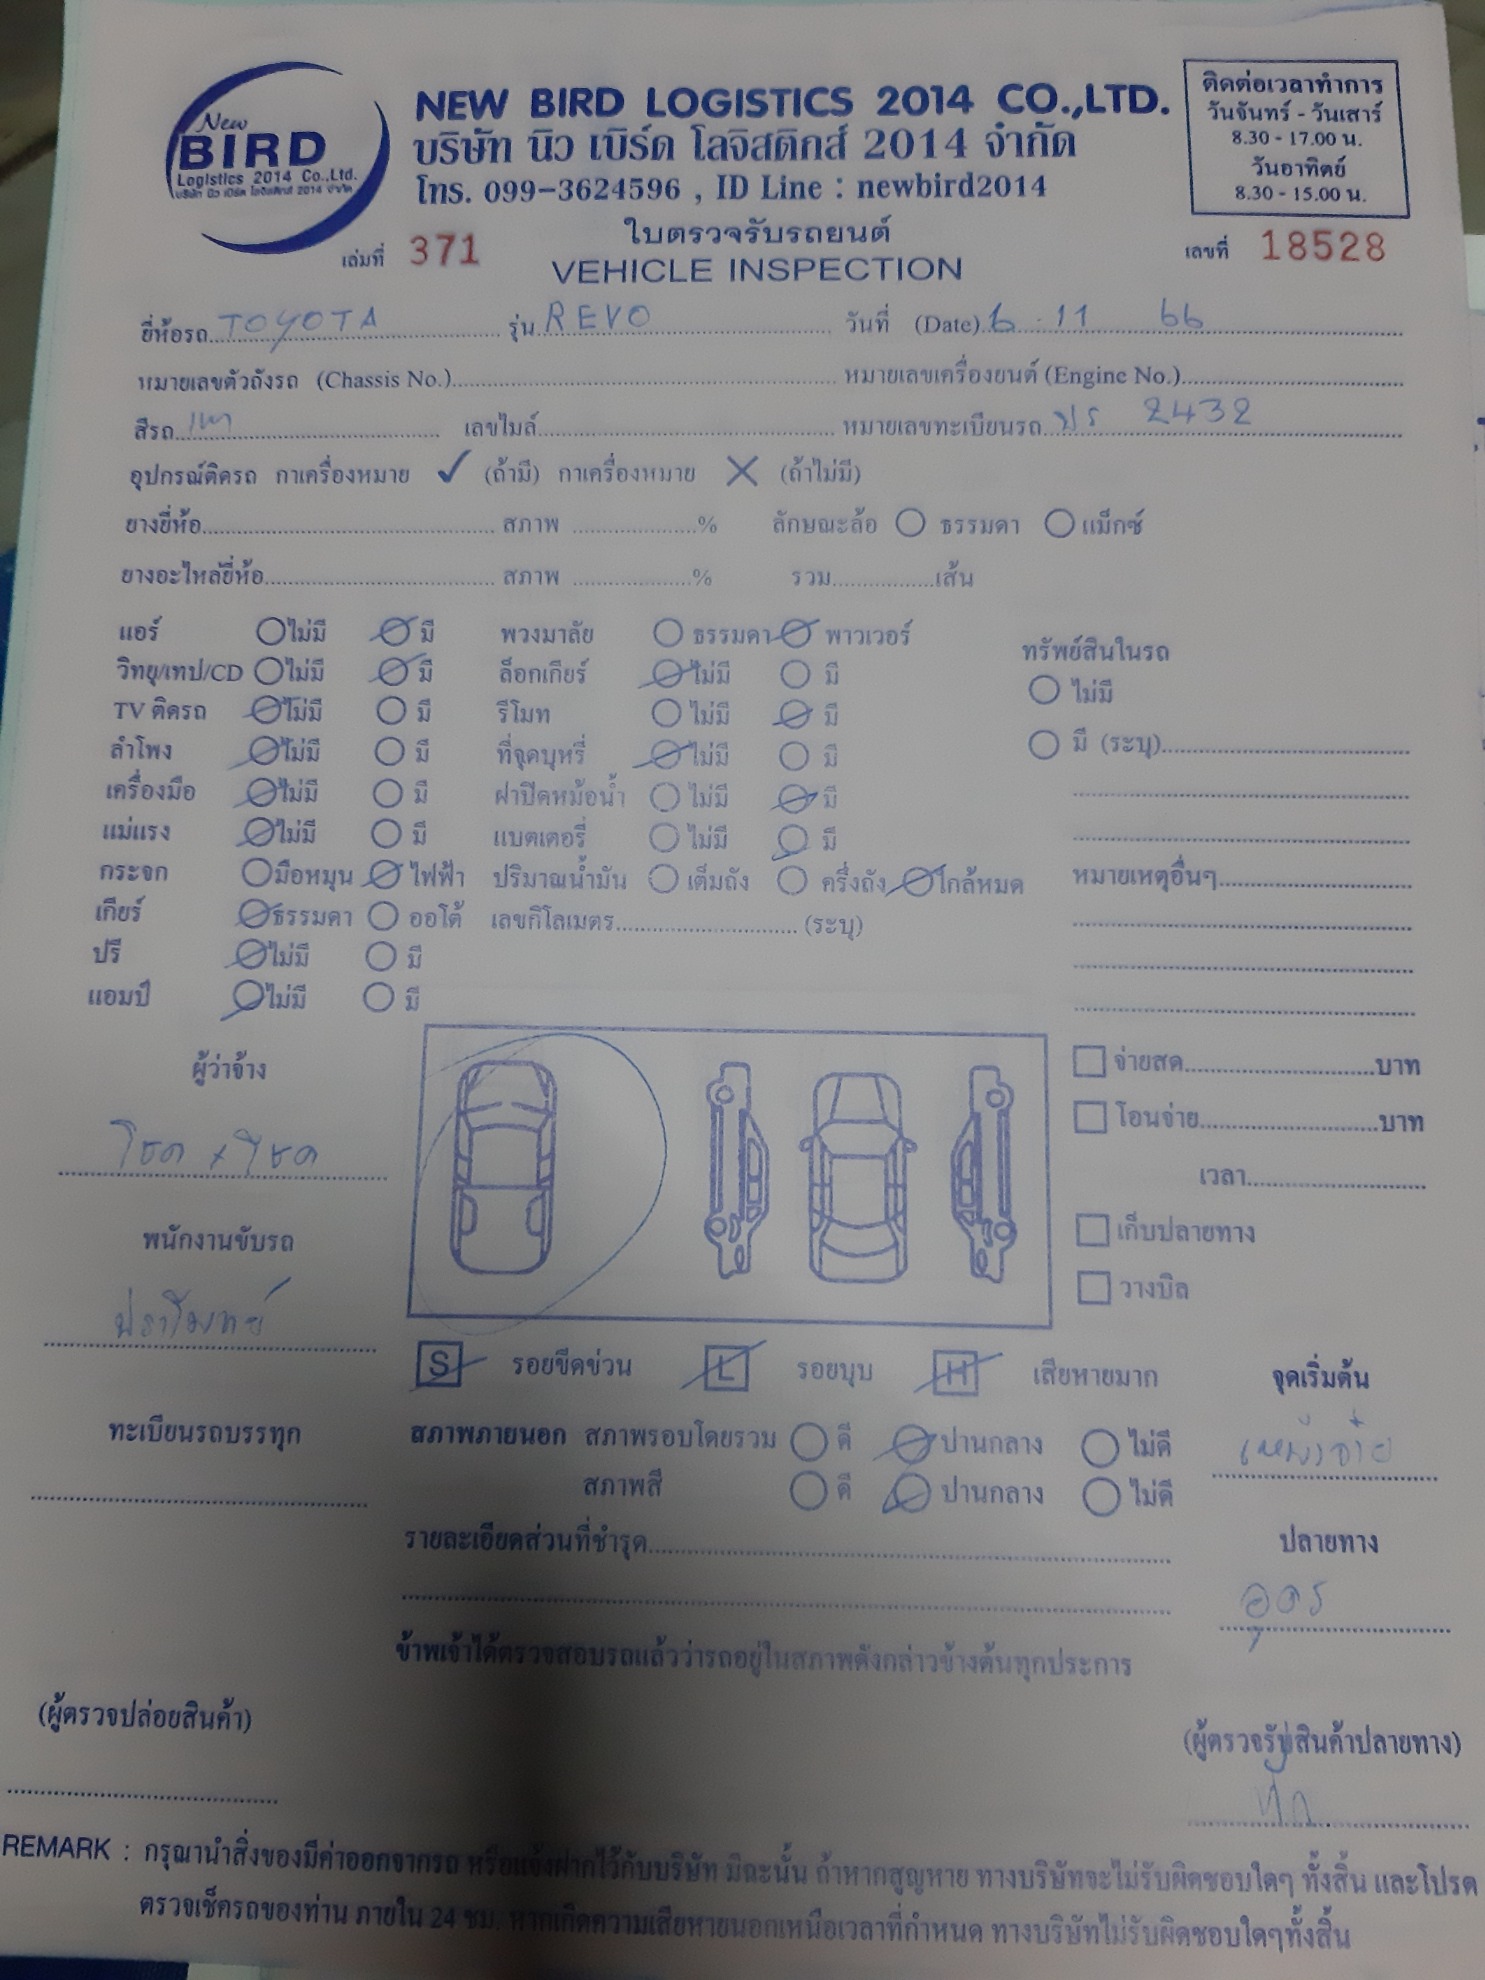 New
BIRD
Logistics 2014 Co.,Ltd.
บริษัท นิว เบิร์ด โลจิสติกส์ 2014 จำกัด
NEW BIRD LOGISTICS 2014 CO.,LTD.
บริษัท นิว เบิร์ด โลจิสติกส์ 2014 จำกัด
โทร. 099-3624596 , ID Line : newbird2014
ติดต่อเวลาทำการ
วันจันทร์ - วันเสาร์
8.30 - 17.00 น.
วันอาทิตย์
8.30 - 15.00 น.
ใบตรวจรับรถยนต์
เล่มที่ 371 VEHICLE INSPECTION เลขที่ 18528
ยี่ห้อรถ TOYOTA รุ่น REVO วันที่ (Date) 6 11 66
หมายเลขตัวถังรถ (Chassis No.) หมายเลขเครื่องยนต์ (Engine No.)
สีรถ เทา เลขไมล์ หมายเลขทะเบียนรถ 2432
อุปกรณ์ติดรถ กาเครื่องหมาย ✓ (ถ้ามี) กาเครื่องหมาย ✕ (ถ้าไม่มี)
ยางยี่ห้อ สภาพ % ลักษณะล้อ ธรรมดา แม็กซ์
ยางอะไหล่ยี่ห้อ สภาพ % รวม เส้น
แอร์ ไม่มี มี พวงมาลัย ธรรมดา พาวเวอร์
ทรัพย์สินในรถ
วิทยุ/เทป/CD ไม่มี มี ล็อกเกียร์ ไม่มี มี
ไม่มี
TV ติดรถ ไม่มี มี รีโมท ไม่มี มี
ลำโพง ไม่มี มี ที่จุดบุหรี่ ไม่มี มี
มี (ระบุ)
เครื่องมือ ไม่มี มี ฝาปิดหม้อน้ำ ไม่มี มี
แม่แรง ไม่มี มี แบตเตอรี่ ไม่มี มี
กระจก มือหมุน ไฟฟ้า ปริมาณน้ำมัน เต็มถัง ครึ่งถัง ใกล้หมด หมายเหตุอื่นๆ
เกียร์ ธรรมดา ออโต้ เลขกิโลเมตร (ระบุ)
ปรี ไม่มี มี
แอมป์ ไม่มี มี
ผู้ว่าจ้าง
จ่ายสด บาท
โอนจ่าย บาท
โชค x โชค
เวลา
พนักงานขับรถ
เก็บปลายทาง
วางบิล
ปราโมทย์
S รอยขีดข่วน L รอยบุบ H เสียหายมาก
จุดเริ่มต้น
ทะเบียนรถบรรทุก
สภาพภายนอก สภาพรอบโดยรวม ดี ปานกลาง ไม่ดี
สภาพสี ดี ปานกลาง ไม่ดี
รายละเอียดส่วนที่ชำรุด
ปลายทาง
อุดร
ข้าพเจ้าได้ตรวจสอบรถแล้วว่ารถอยู่ในสภาพดังกล่าวข้างต้นทุกประการ
(ผู้ตรวจปล่อยสินค้า) (ผู้ตรวจรับสินค้าปลายทาง)
REMARK : กรุณานำสิ่งของมีค่าออกจากรถ หรือแจ้งฝากไว้กับบริษัท มิฉะนั้น ถ้าหากสูญหาย ทางบริษัทจะไม่รับผิดชอบใดๆ ทั้งสิ้น และโปรด
ตรวจเช็ครถของท่าน ภายใน 24 ชม. หากเกิดความเสียหายนอกเหนือเวลาที่กำหนด ทางบริษัทไม่รับผิดชอบใดๆทั้งสิ้น